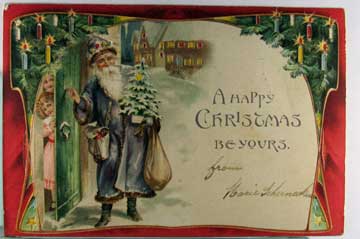 A HAPPY
CHRISTMAS
BE YOURS.
from
Marie